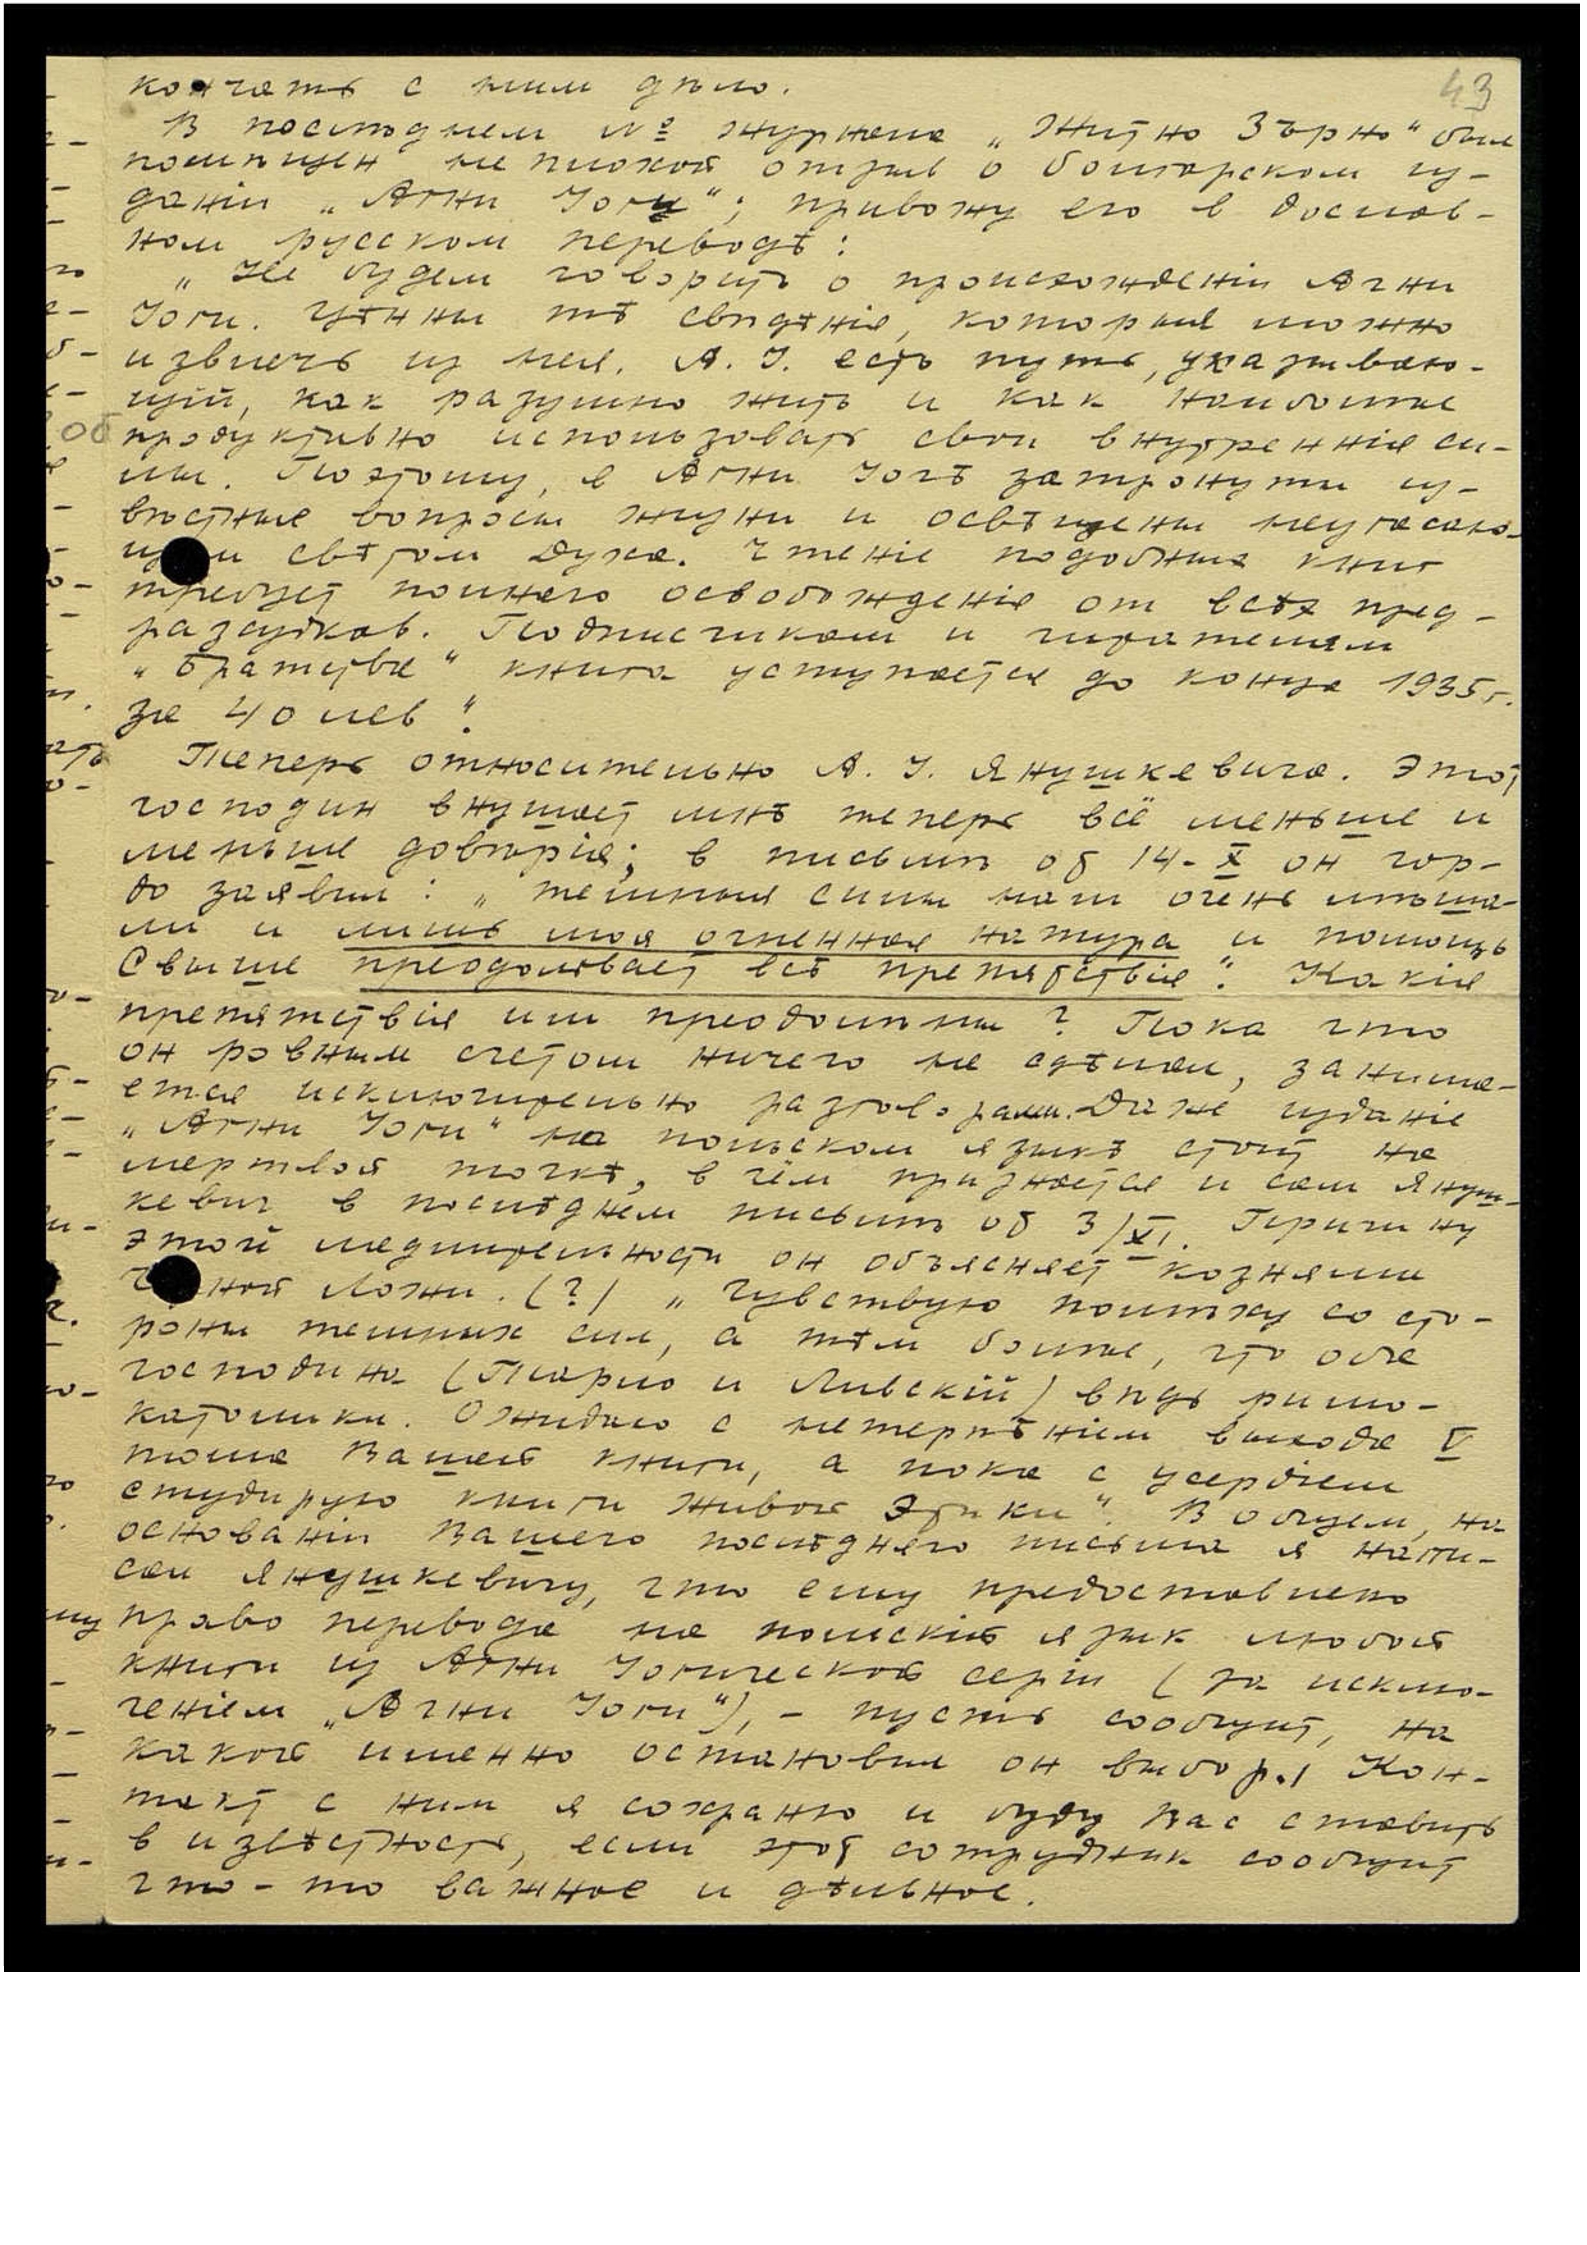 43
кончать с ним дѣло.
В послѣднем № журнала „Житно Зърно“ был
помѣщен не плохой отзыв о болгарском из-
данiи „Агни Йоги“; привожу его в дослов-
ном русском переводѣ:
„Не будем говорить о происхожденiи Агни
Йоги. Цѣнны тѣ свѣдѣнiя, которыя можно
извлечь из нея. А. Й. есть путь, указываю-
щiй, как разумно жить и как наиболѣе
продуктивно использовать свои внутреннiя си-
лы. Поэтому, в Агни Йогѣ затронуты из-
вѣстные вопросы жизни и освѣщены неугасаю-
щим свѣтом Духа. Чтенiе подобных книг
требует полнаго освобожденiя от всѣх пред-
разсудков. Подписчикам и читателям
„Братства“ книга уступается до конца 1935 г.
за 40 лев“.
Теперь относительно А. Й. Янушкевича. Этот
господин внушает мнѣ теперь всё меньше и
меньше довѣрiя; в письмѣ от 14-X он гор-
до заявил: „темныя силы нам очень мѣша-
ли и лишь моя огненная натура и помощь
Свыше преодолѣвает всѣ препятствiя“. Какiя
препятствiя им преодолѣны? Пока что
он ровным счетом ничего не сдѣлал, занима-
ется исключительно разговорами. Даже изданiе
„Агни Йоги“ на польском языкѣ стоит на
мертвой точкѣ, в чём признается и сам Януш-
кевич в послѣднем письмѣ от 3/XI. Причину
этой медлительности он объясняет кознями
черной Ложи. (?) „Чувствую политику со сто-
роны темных сил, а тѣм болѣе, что оба
господина (Тварно и Ливскiй) вѣдь римо-
католики. Ожидаю с нетерпѣнiем выхода V
тома Вашей книги, а пока с усердiем
студирую книги Живой Этики“. В общем, на
основанiи Вашего послѣдняго письма я напи-
сал Янушкевичу, что ему предоставлено
право перевода на польскiй язык любой
книги из Агни Йогической серiи (за исклю-
ченiем „Агни Йоги“), – пусть сообщит, на
какой именно остановил он выбор. Кон-
такт с ним я сохраню и буду Вас ставить
в извѣстность, если этот сотрудник сообщит
что-то важное и дѣльное.